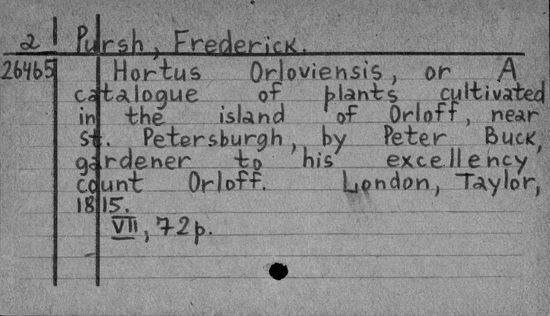 2 Pursh, Frederick.
26465 Hortus Orloviensis, or A
catalogue of plants cultivated
in the island of Orloff, near
St. Petersburgh, by Peter Buck,
gardener to his excellency,
count Orloff. London, Taylor,
1815.
VII, 72p.